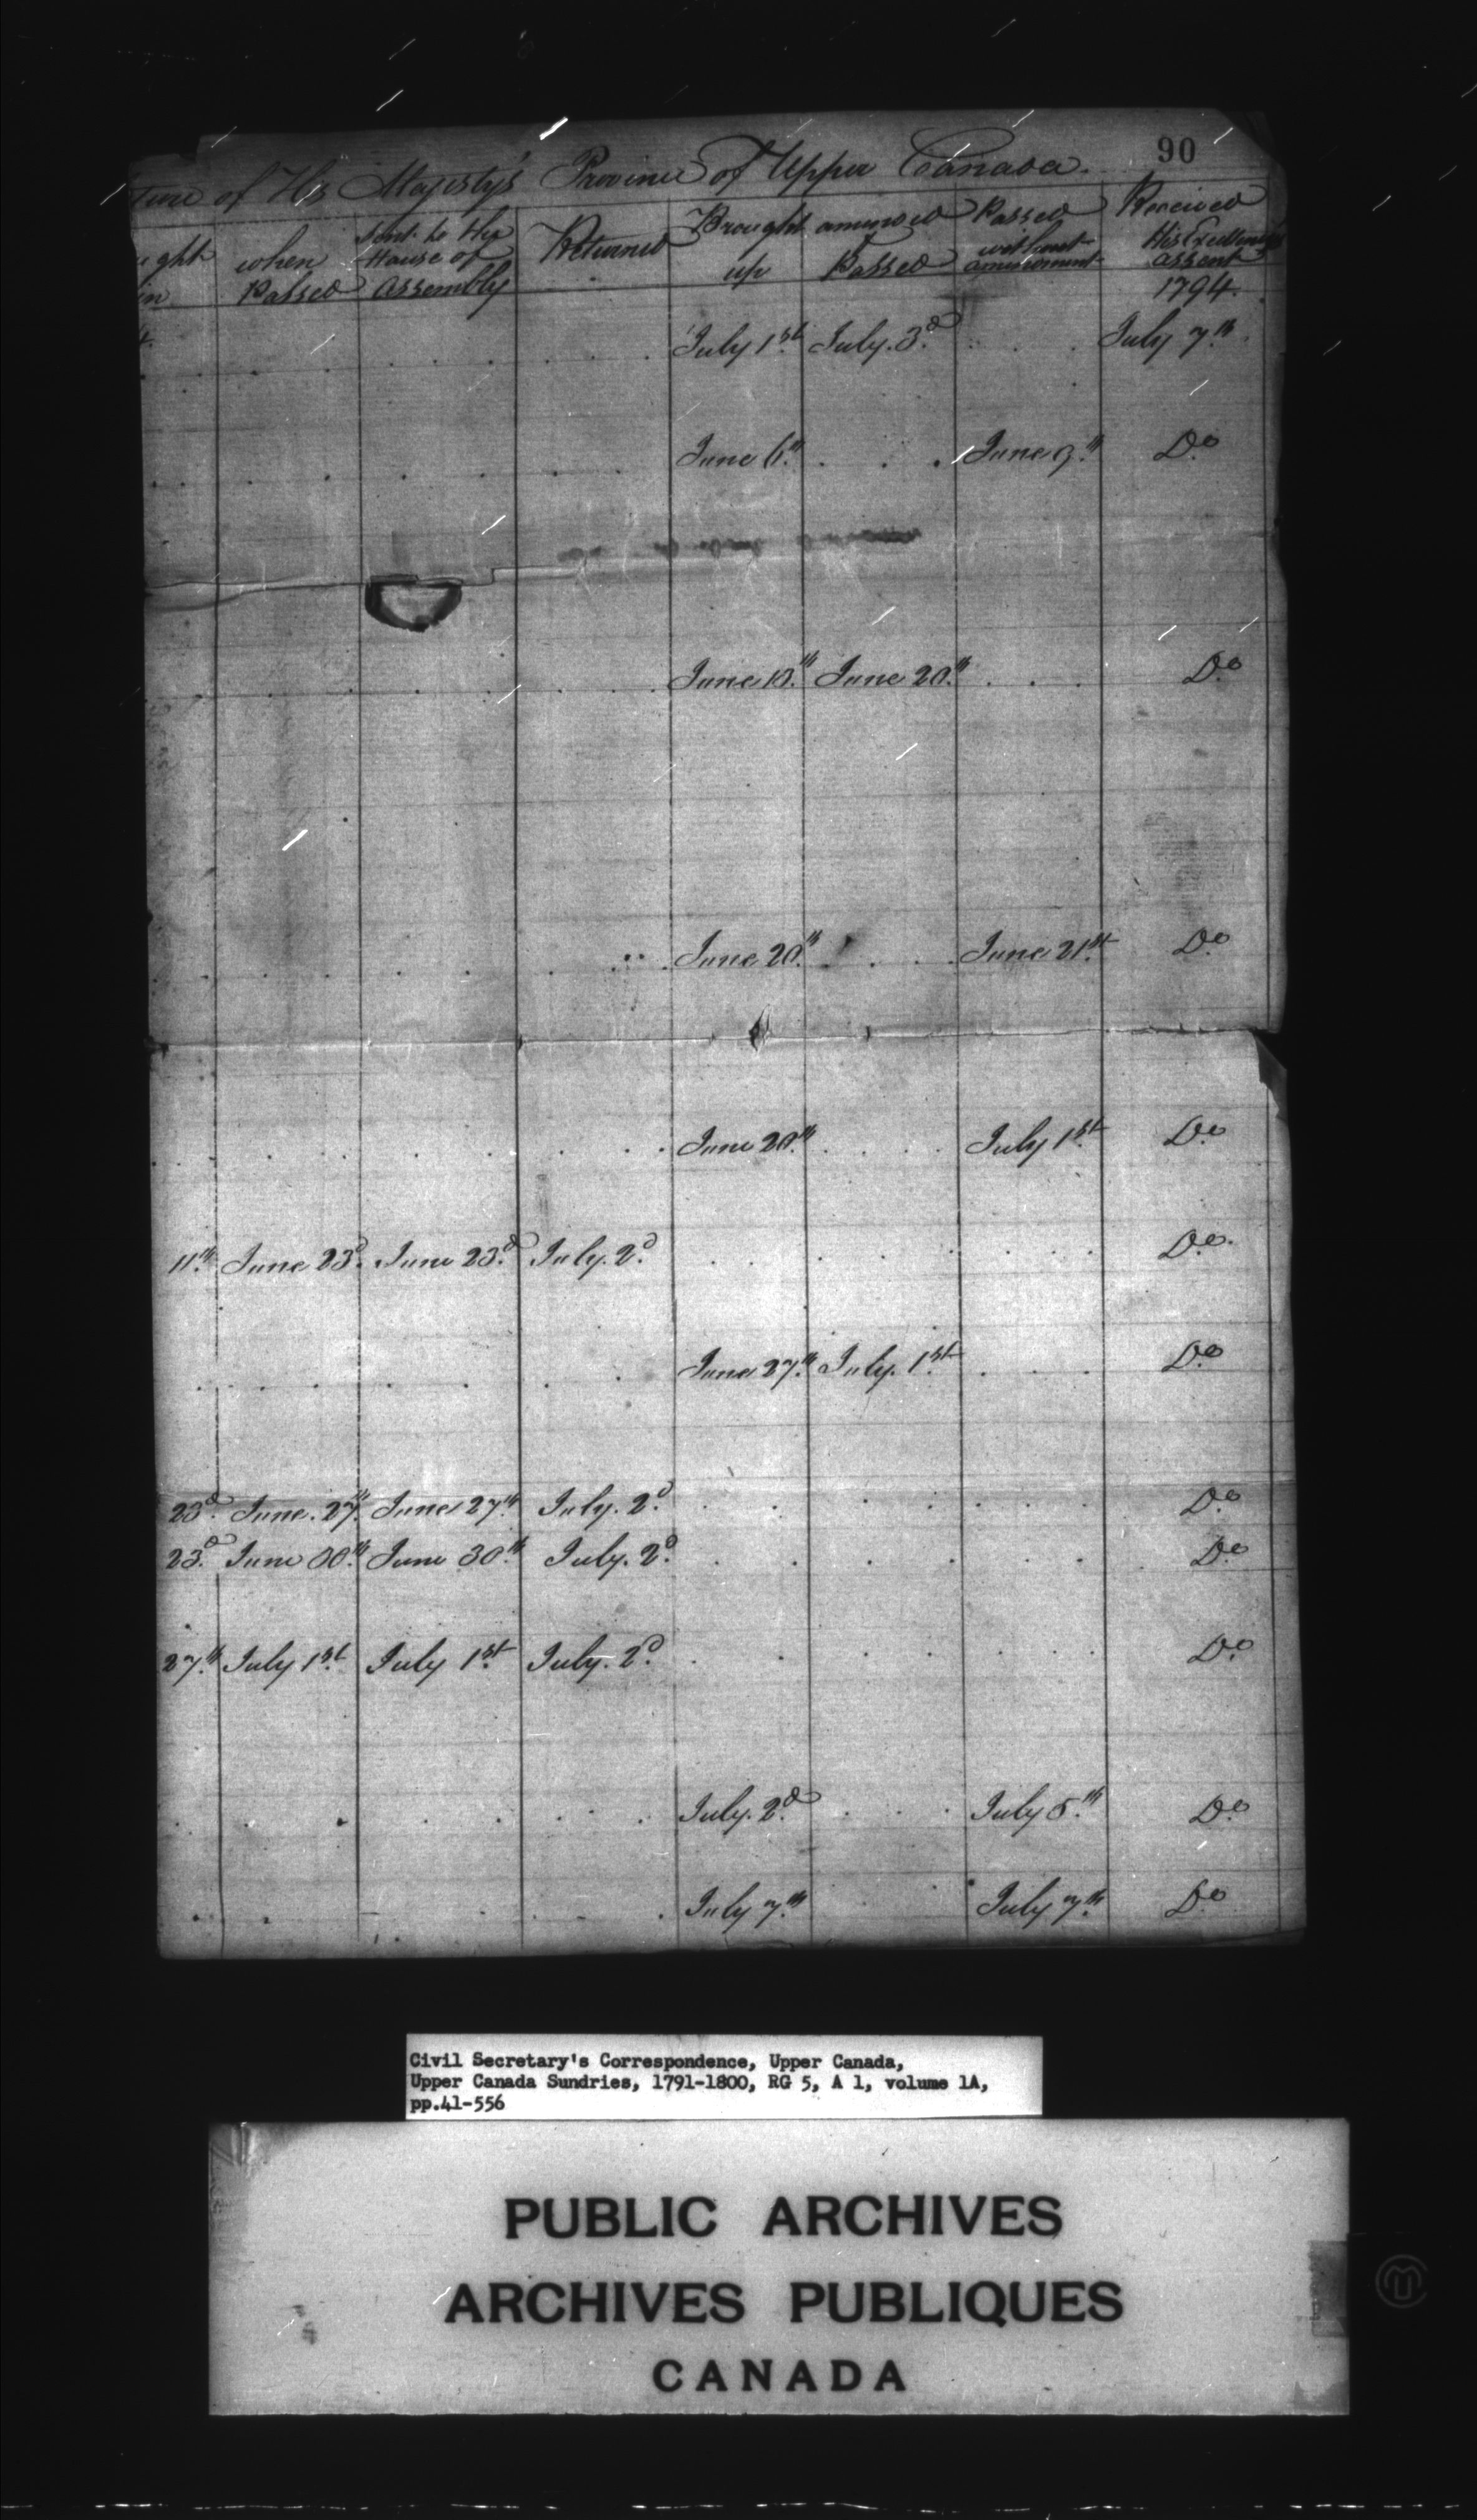 90
ture of His Majesty's Province of Upper Canada.
ught in
when Passed
Sent to the House of Assembly
Returned
Brought up
amended Passed
Passed without amendment
Received His Excellency's assent 1794.
4.
July 1st. July. 3d. July 7th.
June 6th. June 9th. Do.
June 13th. June 20th. Do.
June 20th. June 21st. Do.
June 20th. July 1st. Do.
11th. June 23d. June 23d. July. 2d. Do.
June 27th. July. 1st. Do.
23d. June. 27th. June 27th. July. 2d. Do.
23d. June 30th. June 30th. July. 2d. Do.
27th. July 1st. July 1st. July. 2d. Do.
July. 2d. July 5th. Do.
July 7th. July 7th. Do.
Civil Secretary's Correspondence, Upper Canada,
Upper Canada Sundries, 1791-1800, RG 5, A 1, volume 1A,
pp.41-556
PUBLIC ARCHIVES
ARCHIVES PUBLIQUES
CANADA